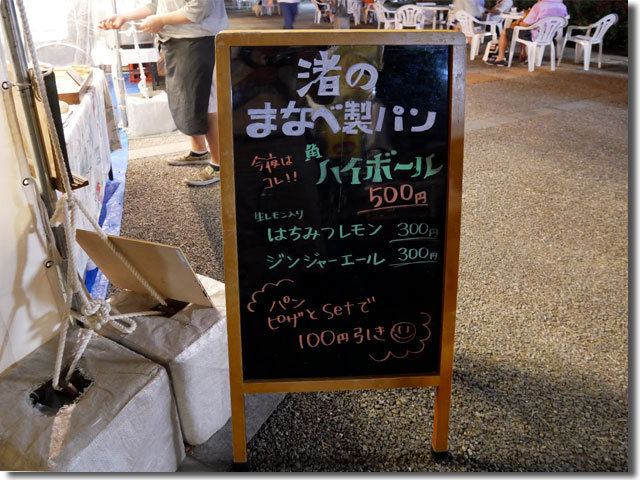 渚の
まなべ製パン
今夜は
コレ!!
角
ハイボール
500円
生レモン入り
はちみつレモン 300円
ジンジャーエール 300円
パン
ピザとsetで
100円引き